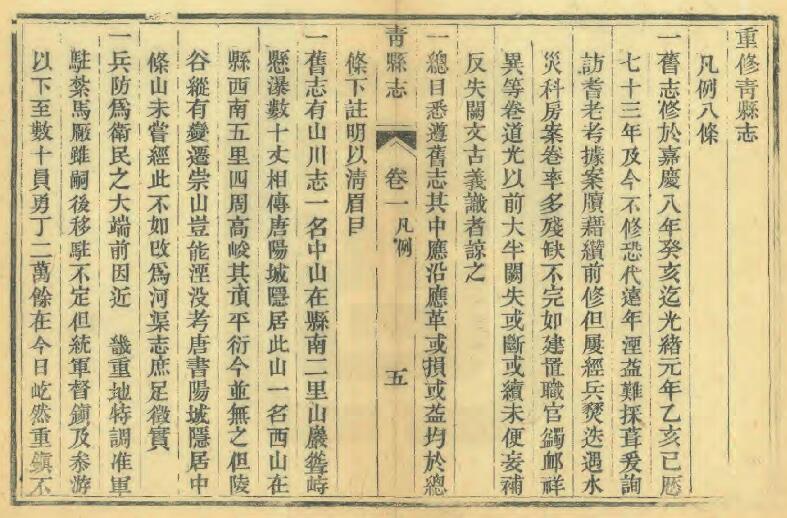 重修青縣志
凡例八條
一舊志修於嘉慶八年癸亥迄光緒元年乙亥已歷
七十三年及今不修恐代遠年湮益難採葺爰詢
訪耆老考據案牘藉纘前修但屢經兵燹迭遇水
災科房案卷率多殘缺不完如建置職官蠲卹祥
異等卷道光以前大半闕失或斷或續未便妄補
反失闕文古義識者諒之
一總目悉遵舊志其中應沿應革或損或益均於總
青縣志 卷一 凡例 五
條下註明以清眉目
一舊志有山川志一名中山在縣南二里山巖聳峙
懸瀑數十丈相傳唐陽城隱居此山一名西山在
縣西南五里四周高峻其頂平衍今並無之但陵
谷縱有變遷崇山豈能湮没考唐書陽城隱居中
條山未嘗經此不如改為河渠志庶足徵實
一兵防爲衛民之大端前因近 畿重地特調准軍
駐紮馬廠雖嗣後移駐不定但統軍督鎭及叅游
以下至數十員勇丁二萬餘在今日屹然重鎭不